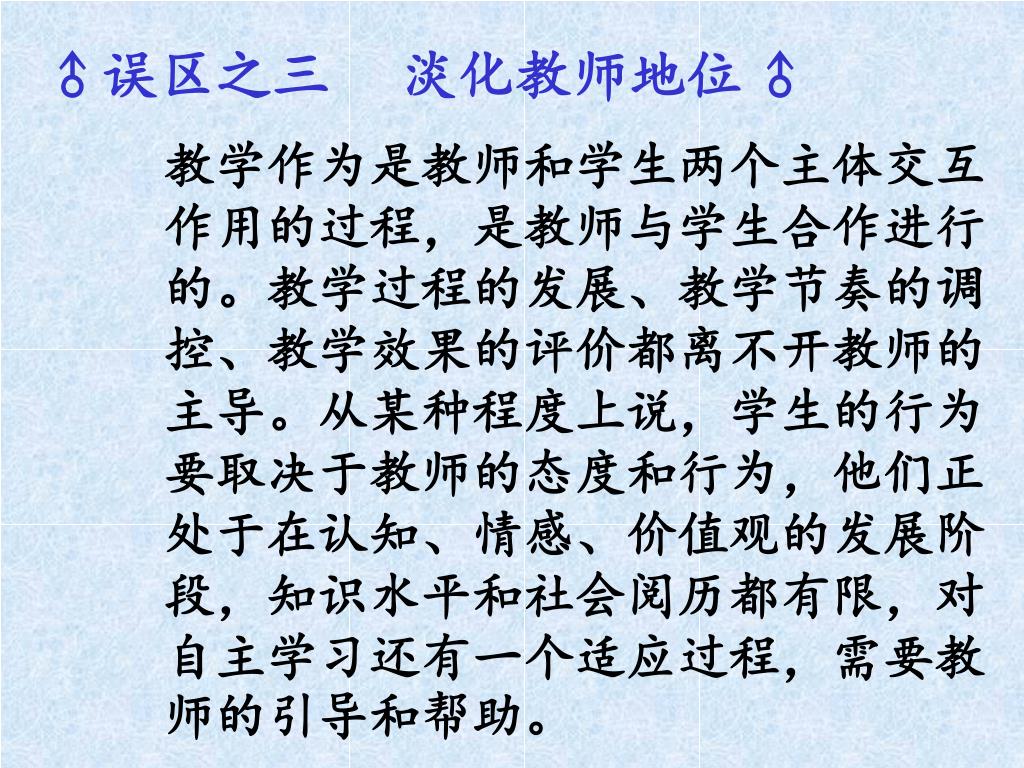 ♂误区之三 淡化教师地位♂
教学作为是教师和学生两个主体交互
作用的过程，是教师与学生合作进行
的。教学过程的发展、教学节奏的调
控、教学效果的评价都离不开教师的
主导。从某种程度上说，学生的行为
要取决于教师的态度和行为，他们正
处于在认知、情感、价值观的发展阶
段，知识水平和社会阅历都有限，对
自主学习还有一个适应过程，需要教
师的引导和帮助。